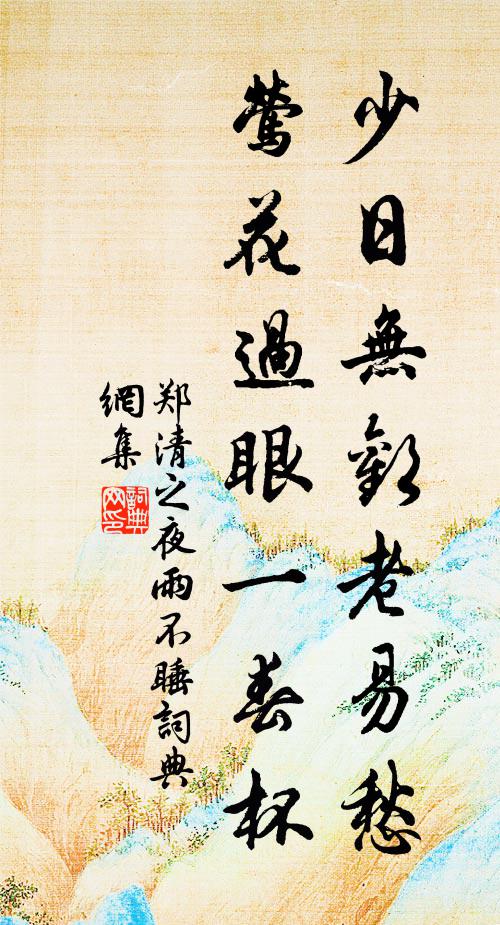 少日無歡老易愁
鶯花過眼一春杯
郑清之夜雨不睡詞典
網集
詞典
网印